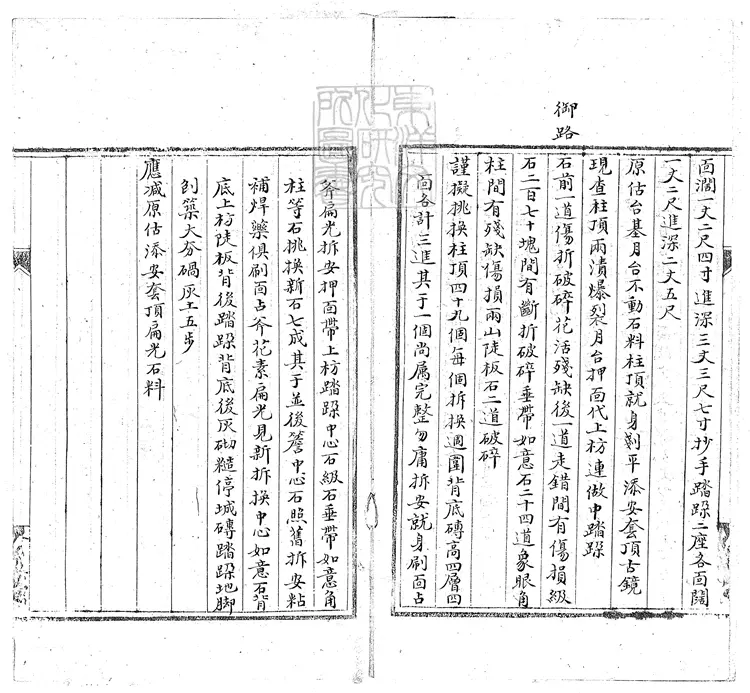 面濶一丈二尺四寸進深三丈三尺七寸抄手踏跺二座各面闊
一丈二尺進深二丈五尺
原估台基月台不動石料柱頂就身剔平添安套頂古鏡
現查柱頂雨漬爆裂月台押面代上枋連做中踏跺
御路
石前一道傷折破碎花活殘缺後一道走錯間有傷損級
石二百七十塊間有斷折破碎垂帶如意石二十四道象眼角
柱間有殘缺傷損兩山陡板石二道破碎
謹擬挑換柱頂四十九個每個拆換週圍背底磚高四層四
面各計三進其于一個尚属完整勿庸拆安就身刷面占
斧扁光拆安押面帶上枋踏跺中心石級石垂帶如意角
柱等石挑換新石七成其于並後簷中心石照舊拆安粘
補焊藥俱刷面占斧花素扁光見新拆換中心如意石背
底上枋陡板背後踏跺背底後灰砌糙停城磚踏跺地脚
刨築大夯碢灰土五步
應减原估添安套頂扁光石料
東洋文化研究所圖書